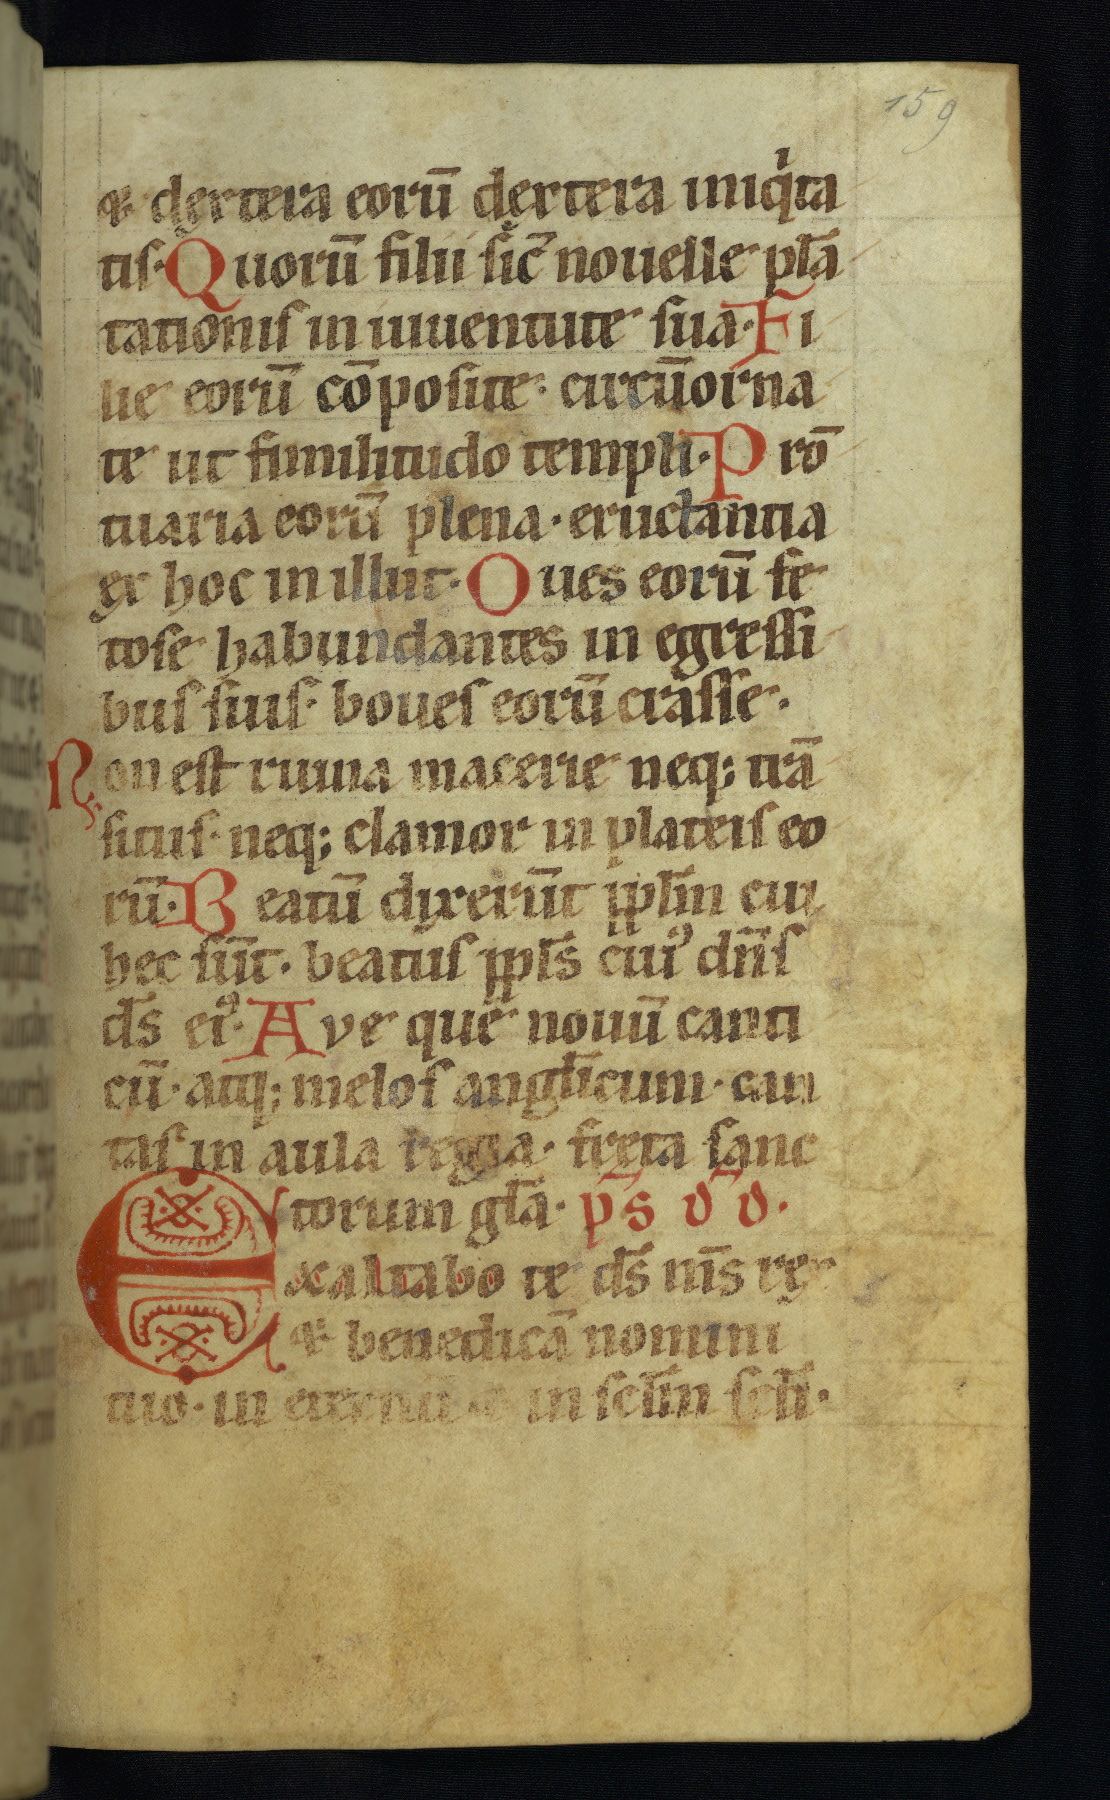 159
⁊ dextera eorū dextera iniq̇ta
tis· Quorū filii sic̄ nouelle plā
tationis in iuuentute sua· Fi
lie eorū cōposite· circūorna
te ut similitudo templi· Prō
tuaria eorū plena· eructantia
ex hoc in illut· Oues eorū fe
tose habundantes in egressi
bus suis· boues eorū crasse·
Non est ruina macerie neq; trā
situs· neq; clamor in plateis eo
rū· Beatū dixerūt ppl̄m cui
hec sūt· beatus ppl̄s cuiꝰ dn̄s
ds̄ eiꝰ· Ave que nouū canti
cū· atq; melos angl̄icum· can
tas in aula regia· fixta sanc
torum gl̄a· ps̄ d̄d̄·
Exaltabo te ds̄ ms̄ rex
⁊ benedicā nomini
tuo· in eternū ⁊ in scl̄m scl̄i·